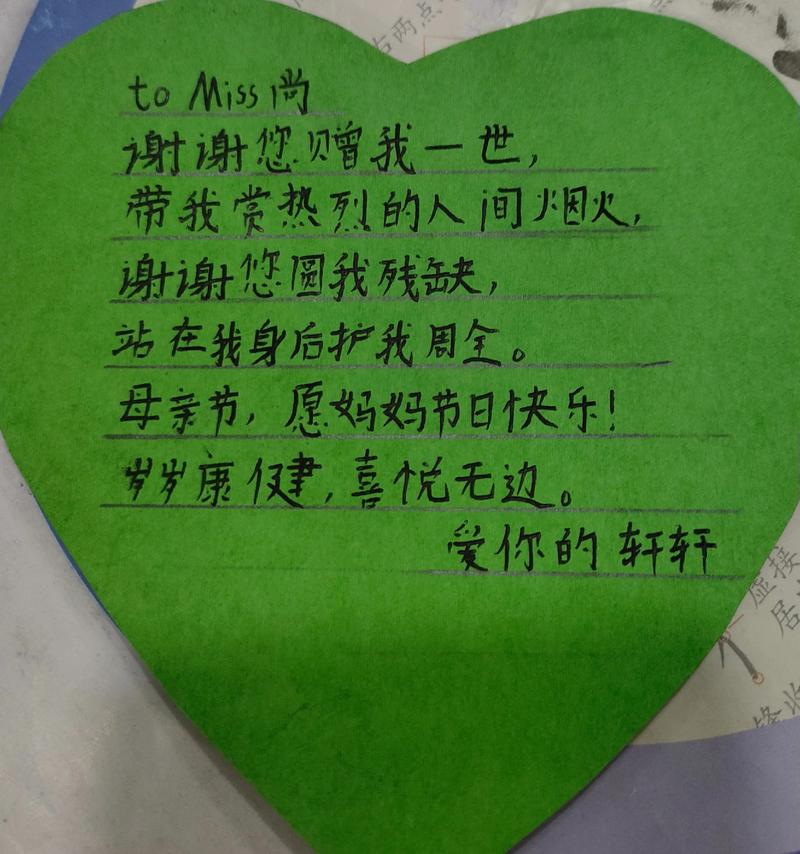 to Miss尚
谢谢您赠我一世，
带我赏热烈的人间烟火，
谢谢您圆我残缺，
站在我身后护我周全。
母亲节，愿妈妈节日快乐！
岁岁康健，喜悦无边。
爱你的轩轩
右两点
虚接
居